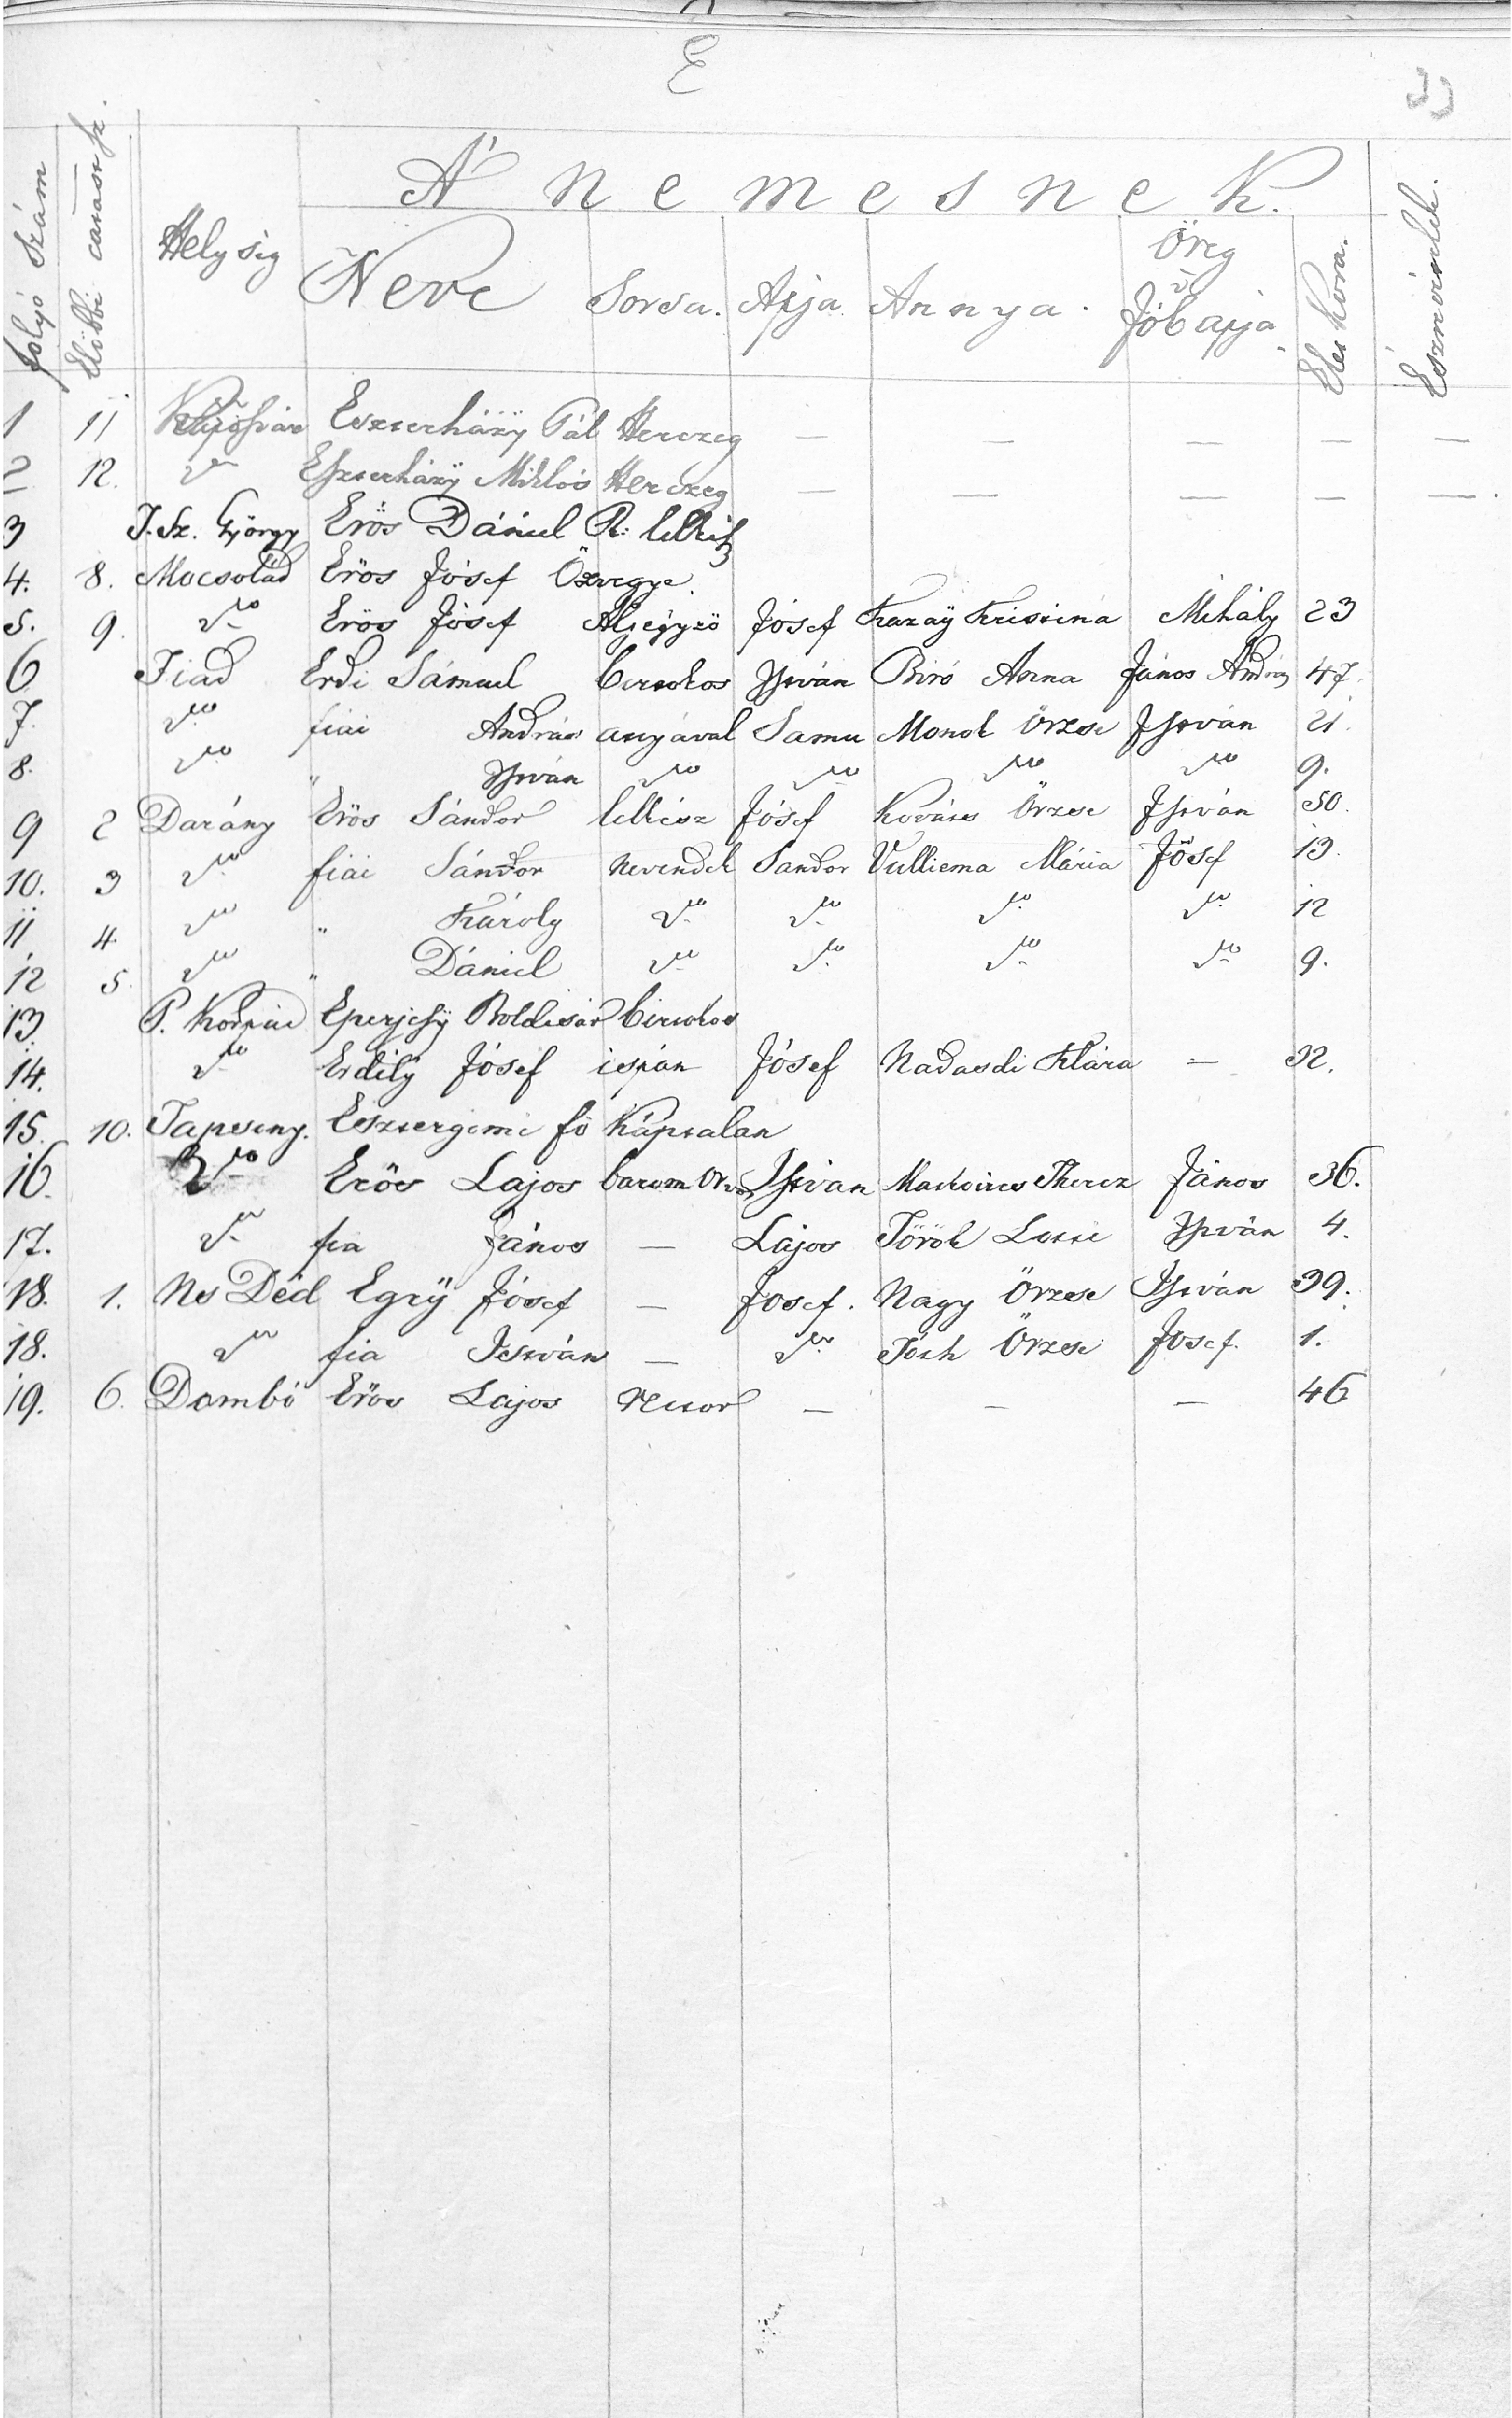 E
A' nemesnek.
folyó szám Elöbbi Helység Neve Sorsa. Apja Annya. Öreg Jóbapja Élet kora. Észrevételek.
1 11 Eszterházÿ Pál Herczeg — — — — —
2 12. do Eszterházÿ Miklós Herczeg — — — — —
3 I. Sz. György Erös Dániel R: lelkész
4. 8. Mocsolád Erös Jósef Özvegye.
5. 9. do Erös Jósef Aljegyzö Jósef Kazaÿ Kristina Mihály 23
6 Fiad Erdi Sámuel birtokos István Biró Anna János András 47.
7. do fiai András anyával Samu Monok Örzse István 21.
8. do " István do do do do 9.
9 2 Darány Erös Sándor lelkész Jósef Kovács Örzse István 50.
10. 3 do fiai Sándor nevendek Sandor Vulliema Mária Jósef 13.
11 4. do " Károly do do do do 12
12 5. do " Dániel do do do do 9.
13. P. Eperjesÿ Boldisár birtokos
14. do Erdélÿ Jósef ispán Jósef Nadasdi Klára — 32.
15. 10. Tapsony. Esztergomi fö Káptalan
16. do Erös Lajos barom Orvos István Theréz János 36.
17. do fia János — Lajos Török István 4.
18. 1. Ns Déd Egrÿ Jósef — Josef. Nagy Örzse István 39.
18. do fia István — do Tóth Örzse Josef. 1.
19. 6. Dombó Erös Lajos rector — — — 46